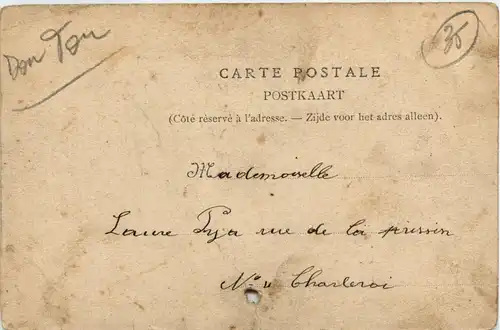 Don Ton
35
CARTE POSTALE
POSTKAART
(Côté réservé à l'adresse. — Zijde voor het adres alleen).
Mademoiselle
Laure rue de la prison
N° Charleroi